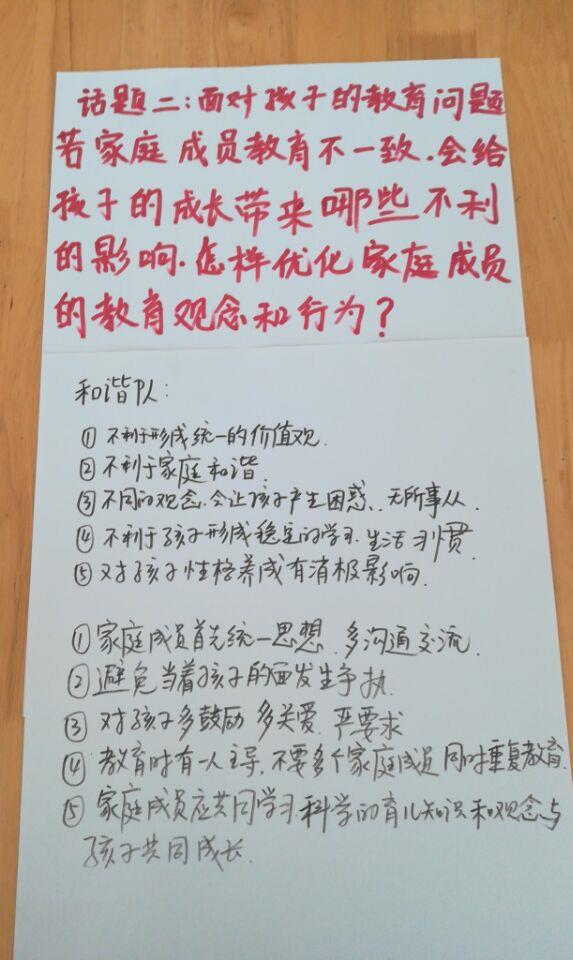 话题二:面对孩子的教育问题
若家庭成员教育不一致.会给
孩子的成长带来哪些不利
的影响.怎样优化家庭成员
的教育观念和行为?
和谐队:
①不利于形成统一的价值观.
②不利于家庭和谐.
③不同的观念.会让孩子产生困惑、无所事从
④不利于孩子形成稳定的学习.生活习惯.
⑤对孩子性格养成有消极影响.
①家庭成员首先统一思想.多沟通交流.
②避免当着孩子的面发生争执.
③对孩子多鼓励 多关爱.严要求
④教育时有一人主导.不要多个家庭成员同时重复教育.
⑤家庭成员应共同学习.科学的育儿知识和观念与
孩子共同成长.